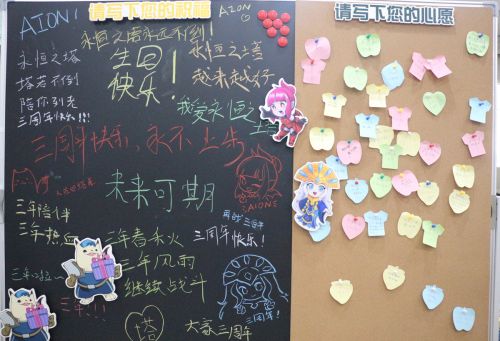 请写下您的祝福
请写下您的心愿
AION!
AION
永恒之塔永远不倒!
永恒之塔
塔若不倒
陪你到老
三周年快乐!!!
生日
快乐!
永恒之塔
越来越好
我爱永恒之塔
三周年快乐,永不止步
未来可期
AION
三年陪伴
三年热血
三周年快乐!
三年风雨
继续战斗
三年!!!
三周年!
塔
大家三周年